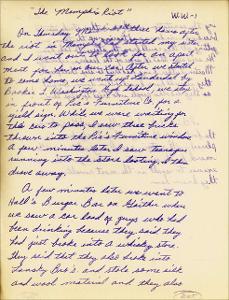 "The Memphis Riot" W.W-1
On Thursday, March 28 three hours after
the riot in Memphis started my sister
and I went
ment for
to some home, we went up
Booker T. Washington High School we stop
in front of Pic's Furniture Co. for a
yield sign. While we were waiting for
the cars to pass, I saw three bricks
thrown into the Pic's Furniture window.
A few minutes later I saw teenagers
running into the store looting, & then
drove away.
A few minutes later we went to
Hall's Burger Bar on Gaither when
we saw a car load of guys who had
been drinking because they said they
had just broke into a whiskey store.
They said that they also broke into
Lansky Bro's. and stole some silk
and wool material and they also